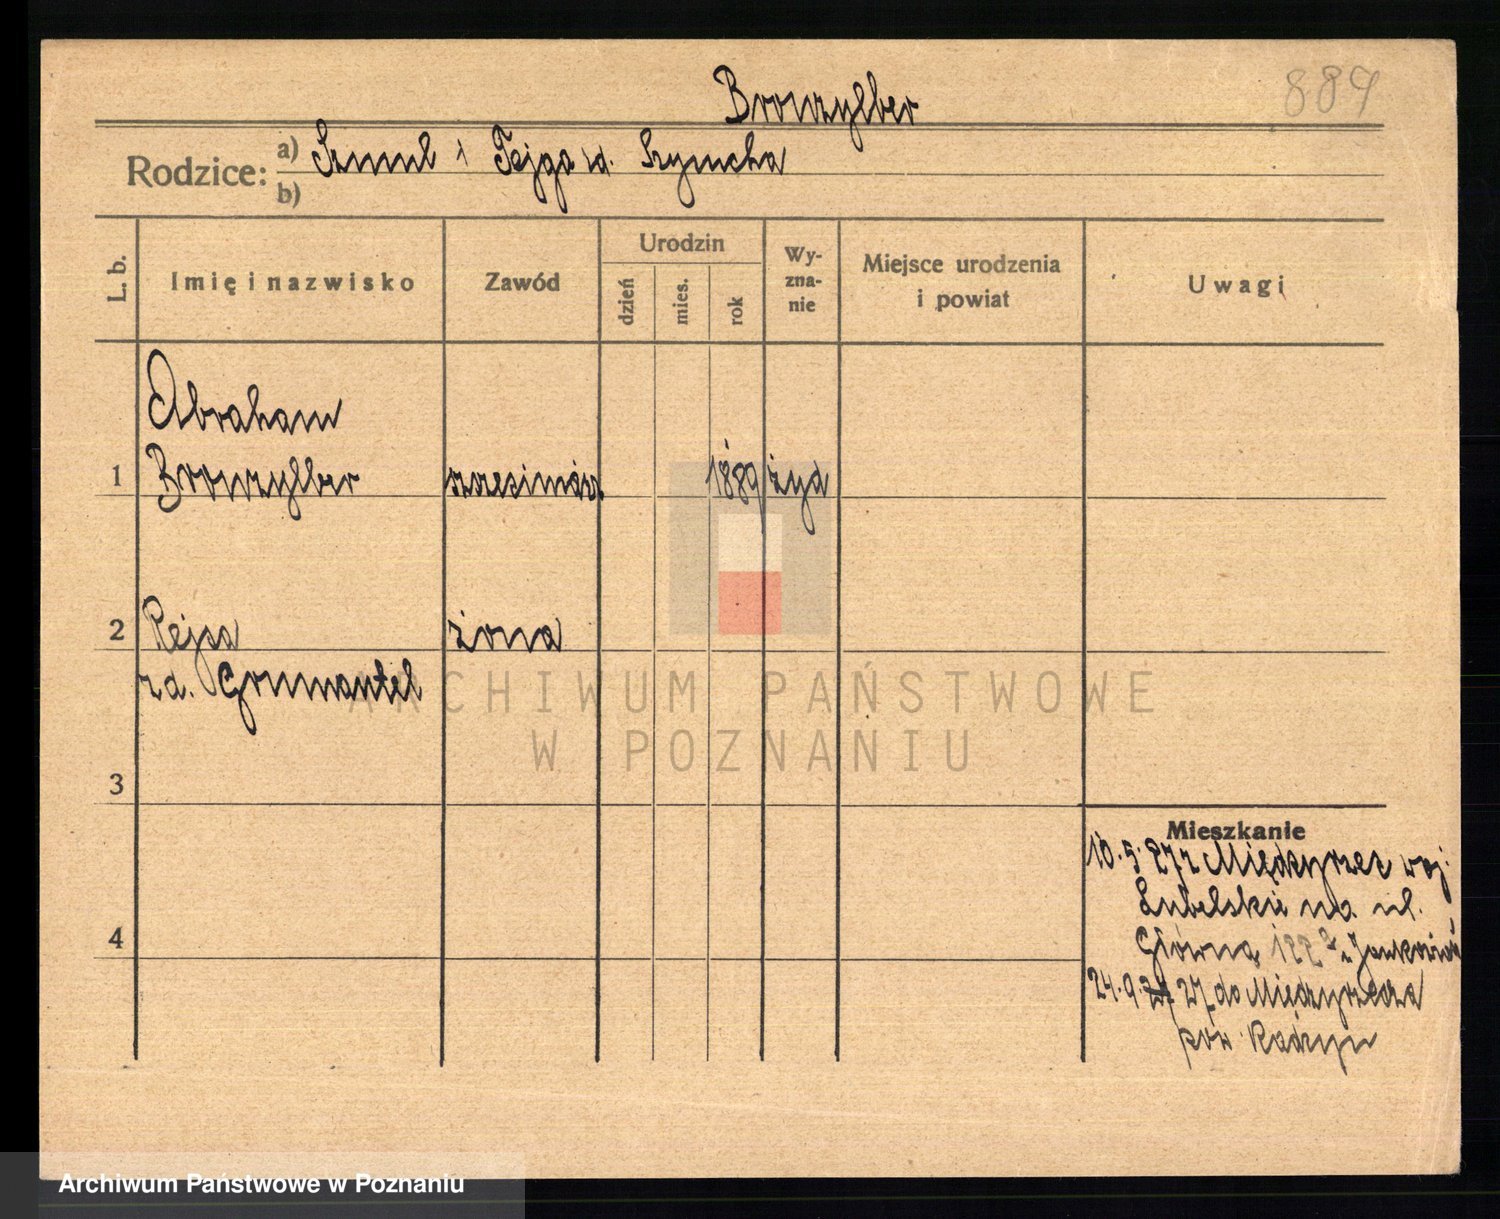 889
Browzylber
Rodzice: a) Szmul i Fejga zd. Szymcha
b)
L. b. Imię i nazwisko Zawód Urodzin dzień mies. rok Wyznanie Miejsce urodzenia i powiat Uwagi
Abraham
1 Browzylber 1889 żyd
2 Rejsa żona
zd.
3
Mieszkanie
10.5.27 z Międzyrzec woj.
Lubelskie na ul.
4
Główną
24.9. 27 do Międzyrzecza
pow. Radzyn
ARCHIWUM PAŃSTWOWE
W POZNANIU
Archiwum Państwowe w Poznaniu